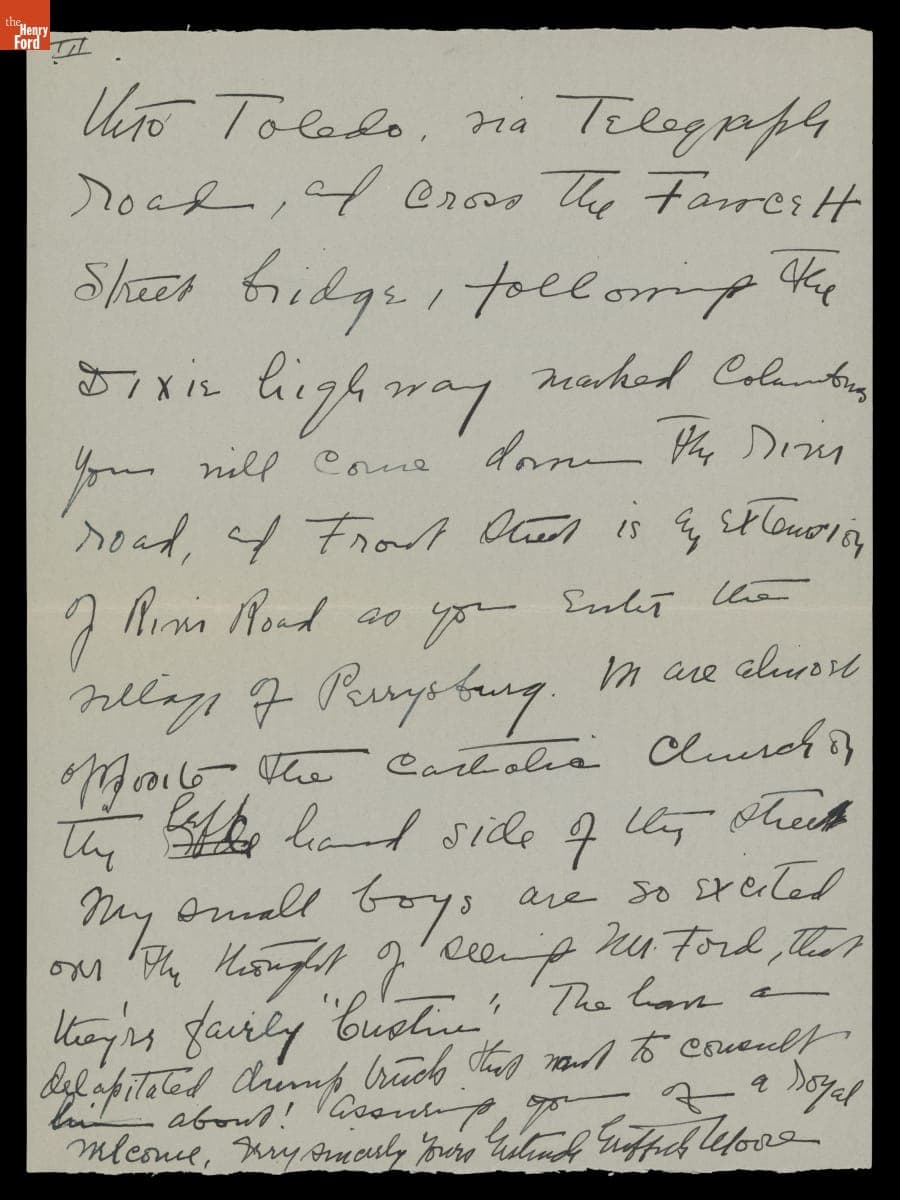 the
Henry
Ford
III
into Toledo, via Telegraph
road, and cross the Fawcett
Street bridge, following the
Dixie highway marked Columbus
You will come down the River
road, and Front Street is an extension
of River Road as you enter the
village of Perrysburg. We are almost
opposite the Catholic Church on
the left hand side of the street
My small boys are so excited
over the thought of seeing Mr. Ford, that
they're fairly "bustin". The have a
delapitated dump truck they want to consult
him about! Assuring you of a royal
welcome, Very sincerely yours Gertrude Griffith Moore